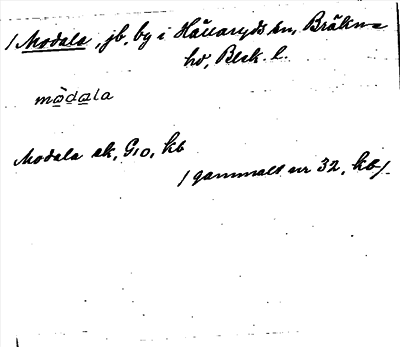 / Modala, jb. by i Hällaryds sn, Bräkne
hd, Blek. l.
mòdala
Modala ek, G10, kb
/ gammalt nr 32, kb/.